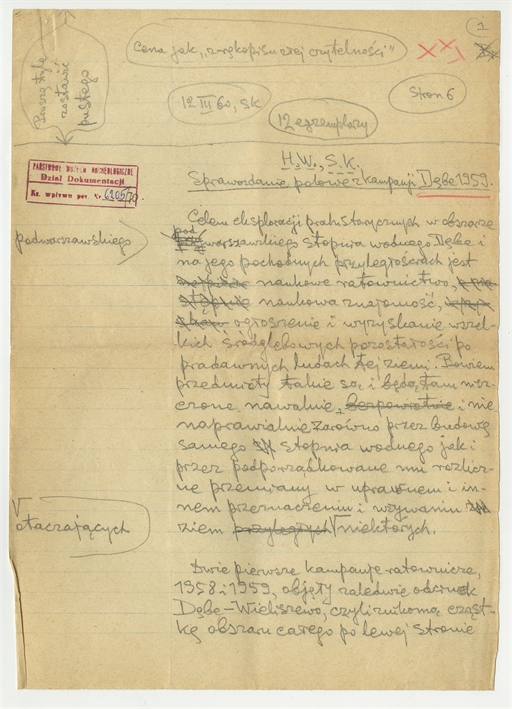 1
Cena jak „z rękopisu złej czytelności”
Proszę tyle
zostawić
pustego
12 III 60, SK
Stron 6
12 egzemplarzy
PAŃSTWOWE MUZEUM ARCHEOLOGICZNE
Dział Dokumentacji
Kr. wpływu poz. Nr 6205/70
H.W., S.K.
Sprawozdanie polowe z kampanji Dębe 1959.
Celem eksploracji prahistorycznych w obszarze
podwarszawskiego
pod
warszawskiego stopnia wodnego Dębe i
na jego pochodnych przyległościach jest
naukowe ratownictwo,
naukowa znajomość,
ogłoszenie i wyzyskanie wszel-
kich śródglebowych pozostałości po
pradawnych ludach tej ziemi. Bowiem
przedmioty takie są i będą tam nisz-
czone nawalnie, bezpowrotnie i nie
naprawialnie zarówno przez budowę
samego stopnia wodnego jak i
przez podporządkowane mu rozlicz-
ne przemiany w uprawnem i in-
nem przeznaczeniu i używaniu
otaczających
ziem przyległych niektórych.
Dwie pierwsze kampanje ratownicze,
1958 i 1959, objęły zaledwie odcinek
Dębe-Wieliszewo, czyli znikomą cząst-
kę obszaru całego po lewej stronie